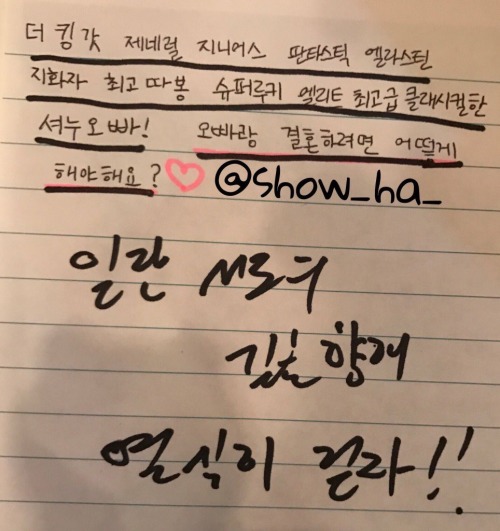 더 킹 갓 제네럴 지니어스 판타스틱 엘라스틴
지화자 최고 따봉 슈퍼루키 엘리트 최고급 클래시컬한
셔누오빠! 오빠랑 결혼하려면 어떨게
해야해요?
@show_ha_
일단 서로의
길을 향해
열식히 걸라!!